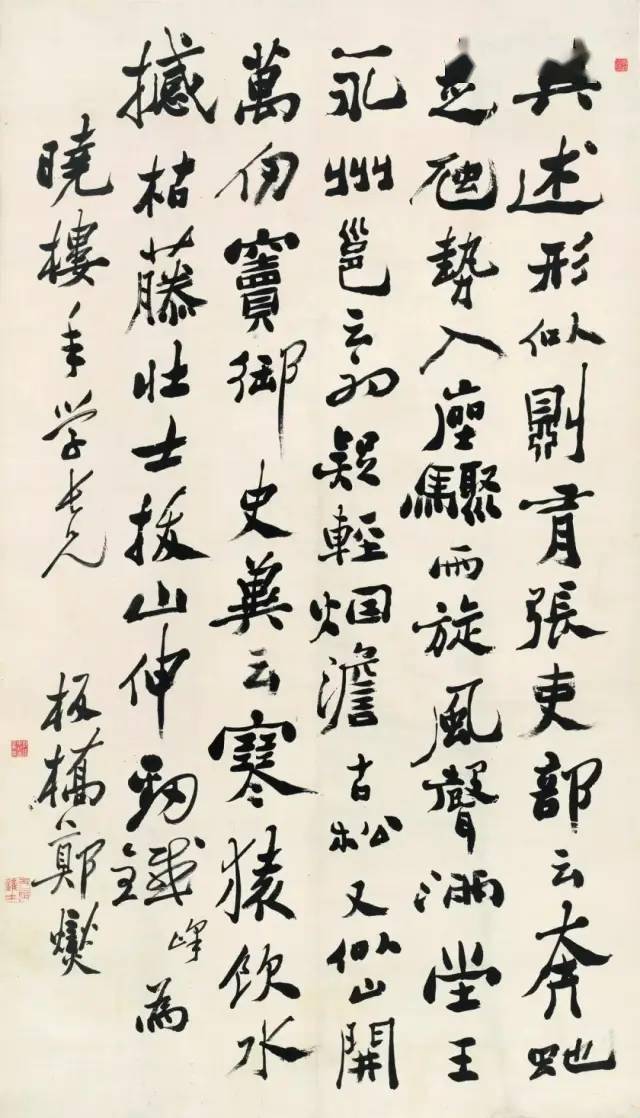 共述形似則有張吏部云奔虵
走虺勢入座驟雨旋風聲滿堂王
永州邕云初疑輕烟澹古松又似山開
萬仞竇御史冀云寒猿飲水
撼枯藤壯士拔山伸勁鐵 峰 為
曉樓年学老兄 板橋鄭燮